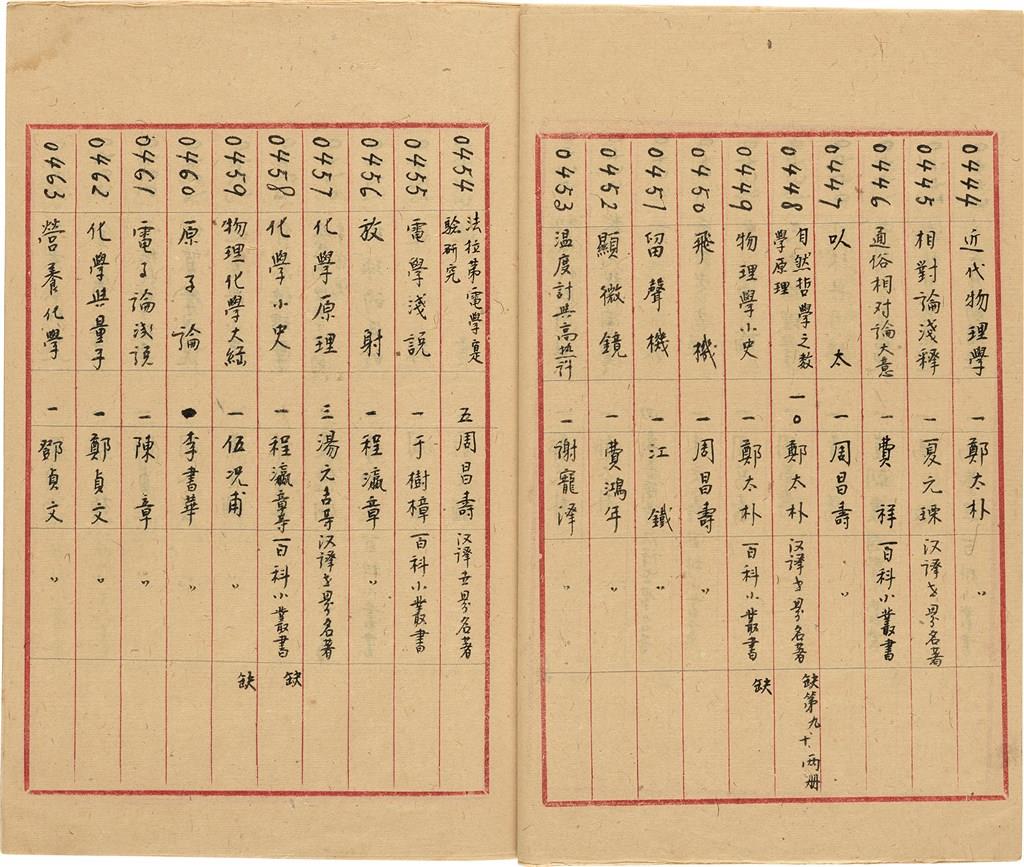 0444 近代物理學 一 鄭太朴 〃
0445 相對論淺釋 一 夏元瑮 汉译世界名著
0446 通俗相对論大意 一 費祥 百科小叢書
0447 以太 一 周昌壽 〃
0448 自然哲學之数學原理 一〇 鄭太朴 汉译世界名著 缺第九、十、两册
0449 物理學小史 一 鄭太朴 百科小叢書 缺
0450 飛機 一 周昌壽 〃
0451 留聲機 一 江鐵 〃
0452 顯微鏡 一 費鴻年 〃
0453 温度計與高热計 一 謝寵澤 〃
0454 法拉第電學实驗研究 五 周昌壽 汉译世界名著
0455 電學淺説 一 于樹樟 百科小叢書
0456 放射 一 程瀛章 〃
0457 化學原理 三 湯元吉等 汉译世界名著
0458 化學小史 一 程瀛章等 百科小叢書 缺
0459 物理化學大綱 一 伍況甫 〃 缺
0460 原子論 一 李書華 〃
0461 電子論浅説 一 陳章 〃
0462 化學與量子 一 鄭貞文 〃
0463 營養化學 一 鄧貞文 〃